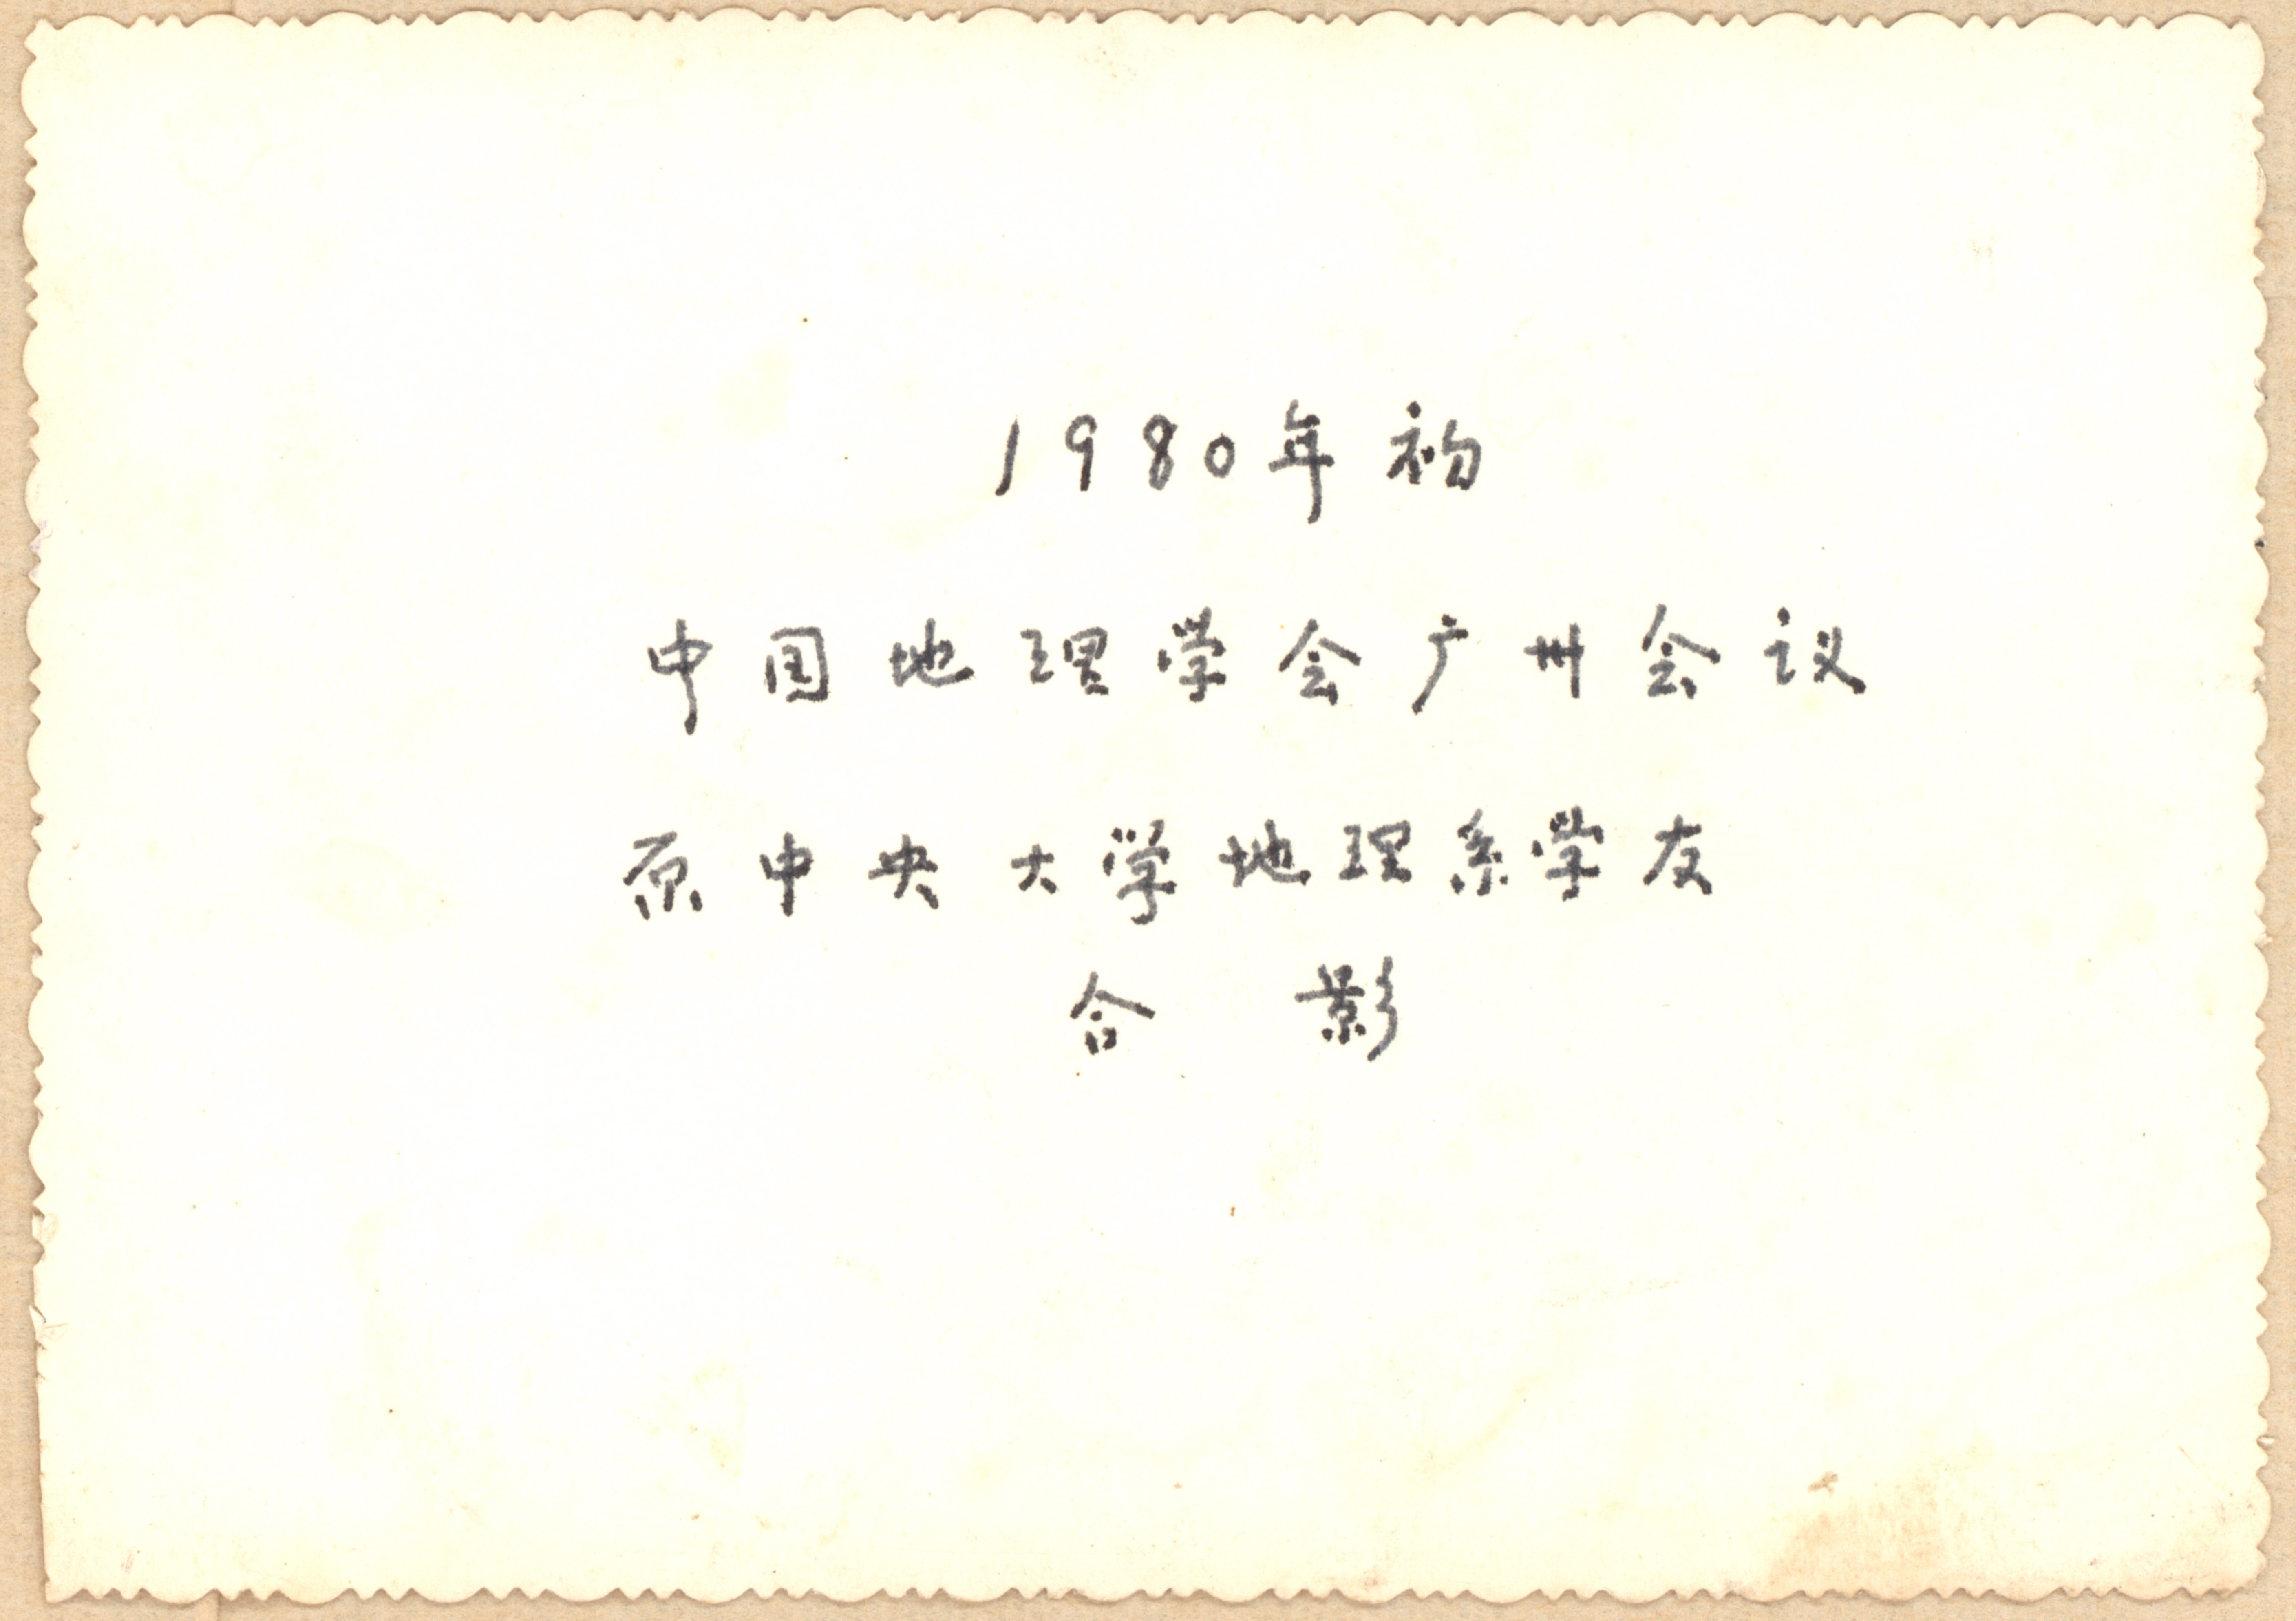 1980年初
中国地理学会广州会议
原中央大学地理系学友
合影